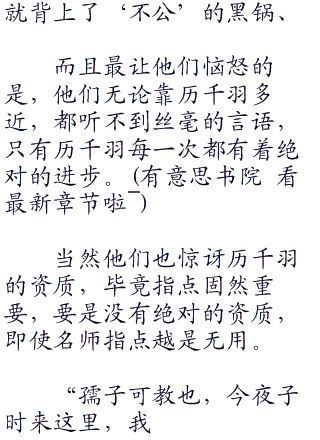 就背上了‘不公’的黑锅、
而且最让他们恼怒的
是，他们无论靠历千羽多
近，都听不到丝毫的言语，
只有历千羽每一次都有着绝
对的进步。(有意思书院 看
最新章节啦¯)
当然他们也惊讶历千羽
的资质，毕竟指点固然重
要，要是没有绝对的资质，
即使名师指点越是无用。
“孺子可教也，今夜子
时来这里，我